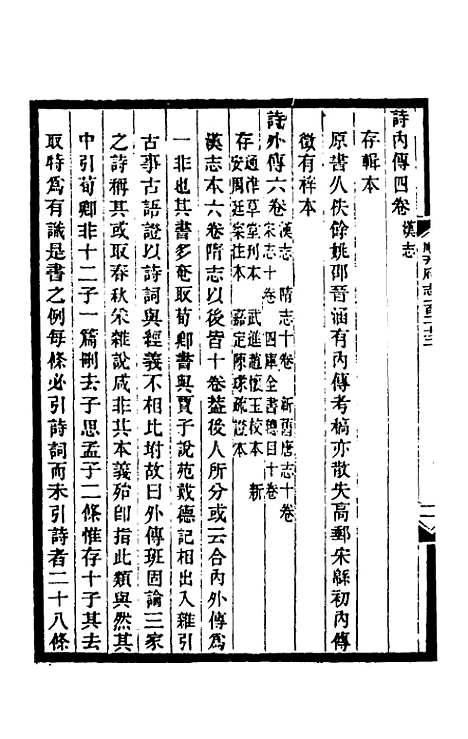 詩內傳四卷漢志
存輯本
原書久佚餘姚邵晉涵有內傳考稿亦散失高郵宋緜初內傳
徵有祥本
詩外傳六卷漢志 隋志十卷 新舊唐志十卷
宋志十卷 四庫全書總目十卷
存通津草堂刊本 武進趙懷玉校本 新
安周廷寀注本 嘉定陳瑑疏證本
漢志本六卷隋志以後皆十卷蓋後人所分或云合內外傳爲
一非也其書多夌取荀卿書與賈子說苑戴德記相出入雜引
古事古語證以詩詞與經義不相比坿故曰外傳班固論三家
之詩稱其或取春秋采雜說咸非其本義殆卽指此類與然其
中引荀卿非十二子一篇刪去子思孟子二條惟存十子其去
取時爲有識是書之例每條必引詩詞而未引詩者二十八條
順天府志一百二十三